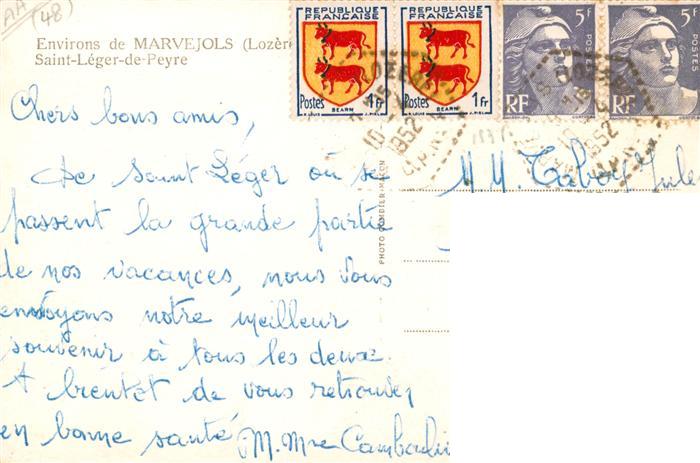 AA
(48)
Environs de MARVEJOLS (Lozère
Saint-Léger-de-Peyre
REPUBLIQUE FRANÇAISE
Postes 1Fr
BEARN
REPUBLIQUE FRANÇAISE
Postes 1Fr
BEARN
5f
POSTES
RF
5f
POSTES
RF
1952
1952
Chers bons amis,
De Saint Léger où se
passent la grande partie
de nos vacances, nous vous
envoyons notre meilleur
souvenir à tous les deux.
A bientôt de vous retrouver
en bonne santé
M. Mme
PHOTO COMBIER MACON
M M.